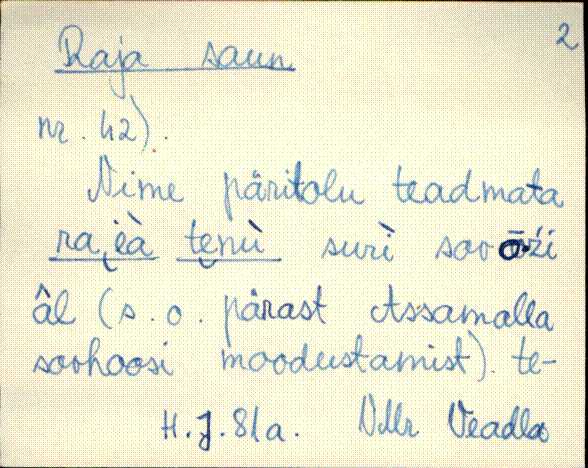 2
Raja saun
nr. 42).
Nime päritolu teadmata
rai̯èà tenù surì sov̄oźi
âl (s.o. pärast Assamalla
sovhoosi moodustamist). te-
H.J. 81a. VMr Veadla